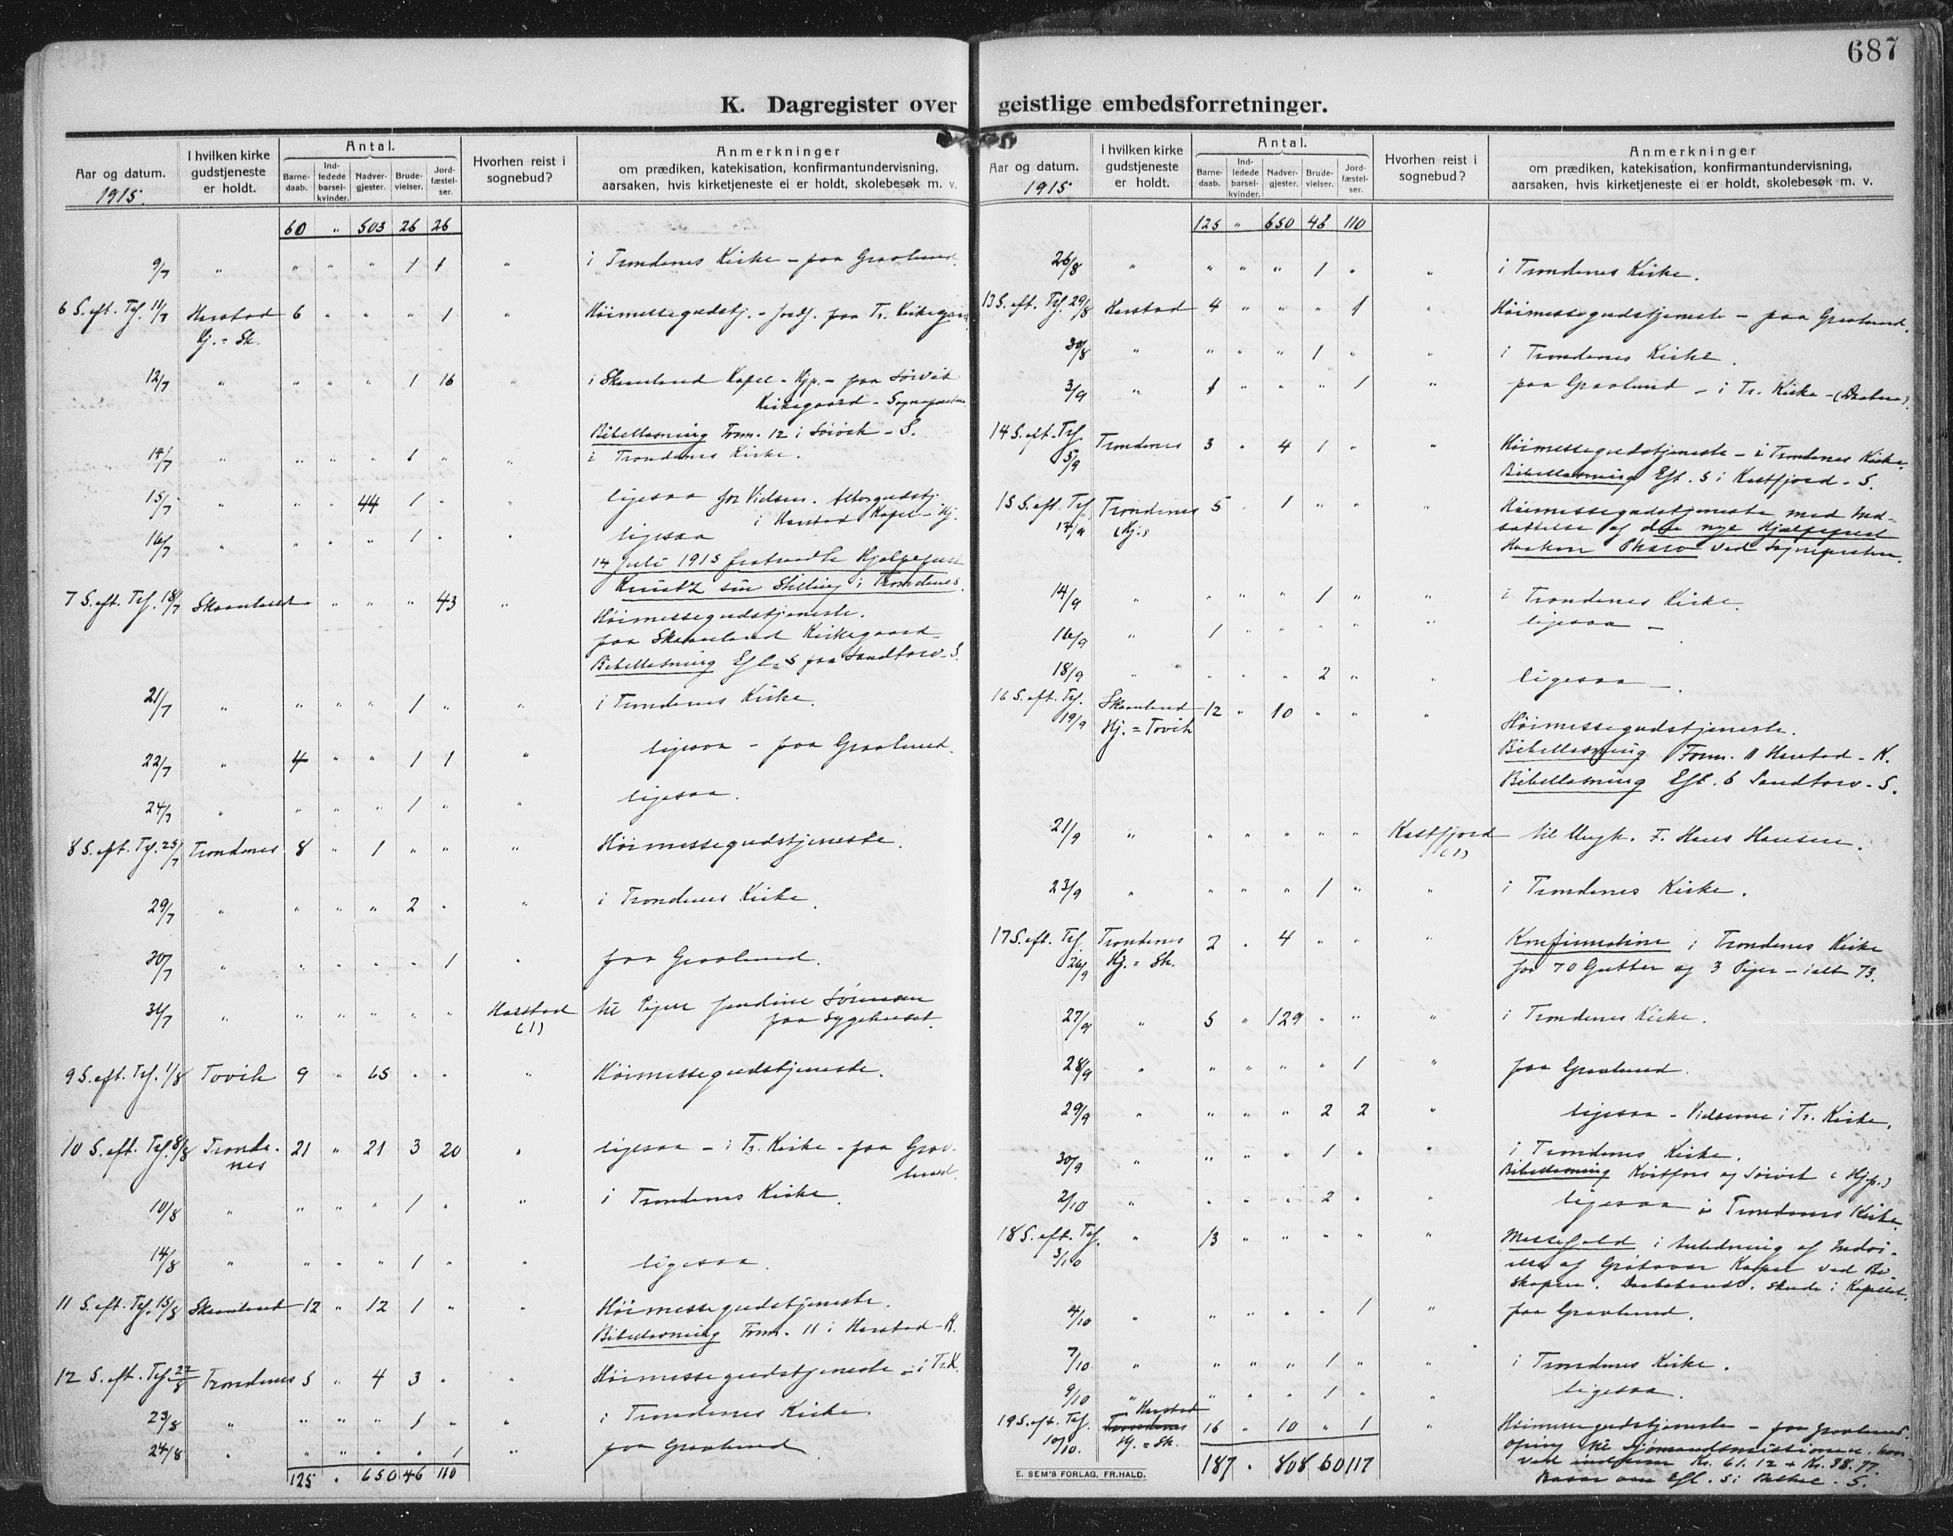 687
K. Dagregister over geistlige embedsforretninger.
Aar og datum. 1915. | I hvilken kirke gudstjeneste er holdt. | Antal. Barnedaab. | Indledede barselkvinder. | Nadvergjester. | Brudevielser. | Jordfæstelser. | Hvorhen reist i sognebud? | Anmerkninger om prædiken, katekisation, konfirmantundervisning, aarsaken, hvis kirketjeneste ei er holdt, skolebesøk m. v.
60 " 503 26 26
9/7 " " " " 1 1 " i Trondenes Kirke – paa Gravlund.
6 S. eft. Tf. 11/7 Harstad 6 " " " 1 " Høimessegudstj. – jordf. paa Tr. Kirkegaard
Hj. = Sk.
12/7 " " " " 1 16 " i Skaanland Kapel – Hjp. – paa Sørvik
Kirkegaard – Sognepresten
Bibellæsning Form. 12 i Sørvik – S.
14/7 " " " " 1 " " i Trondenes Kirke.
15/7 " " " 44 1 " " ligesaa for Vielsen. Altergudstj.
i Harstad Kapel – Hj.
16/7 " " " " 1 " " ligesaa
14 Juli 1915 fratraadte Hjelpeprest
sin Stilling i Trondenes.
7 S. eft. Tf. 18/7 Skaanland " " " " 43 " Høimessegudstjeneste.
paa Skaanland Kirkegaard.
Bibellæsning Eft. 5 paa Sandtorv – S.
21/7 " " " " 1 " " i Trondenes Kirke.
22/7 " 4 " " 1 1 " ligesaa – paa Gravlund.
24/7 " " " " 1 " " ligesaa.
8 S. eft. Tf. 25/7 Trondenes 8 " 1 " " " Høimessegudstjeneste.
29/7 " " " " 2 " " i Trondenes Kirke.
30/7 " " " " " 1 " paa Gravlund.
31/7 " " " " " " Harstad til Pigen Jordine Sørensen
(1) paa Sygehuset.
9 S. eft. Tf. 1/8 Tovik 9 " 65 " " " Høimessegudstjeneste.
10 S. eft. Tf. 8/8 Tronde- 21 " 21 3 20 " ligesaa – i Tr. Kirke – paa Grav-
nes lund.
10/8 " " " " 1 " " i Trondenes Kirke.
14/8 " " " " 1 " " ligesaa.
11 S. eft. Tf. 15/8 Skaanland 12 " 12 1 " " Høimessegudstjeneste.
Bibellæsning Form. 11 i Harstad – K.
12 S. eft. Tf. 22/8 Trondenes 5 " 4 3 " " Høimessegudstjeneste – i Tr. K.
23/8 " " " " 1 " " i Trondenes Kirke
24/8 " " " " " 1 " paa Gravlund.
125 " 650 46 110
Aar og datum. 1915 | I hvilken kirke gudstjeneste er holdt. | Antal. Barnedaab. | Indledede barselkvinder. | Nadvergjester. | Brudevielser. | Jordfæstelser. | Hvorhen reist i sognebud? | Anmerkninger om prædiken, katekisation, konfirmantundervisning, aarsaken, hvis kirketjeneste ei er holdt, skolebesøk m. v.
125 " 650 46 110
26/8 " " " " 1 " " i Trondenes Kirke.
13 S. eft. Tf. 29/8 Harstad 4 " " " 1 " Høimessegudstjeneste – paa Gravlund.
30/8 " " " " 1 " " i Trondenes Kirke.
3/9 " 1 " " " 1 " paa Gravlund – i Tr. Kirke – (Daaben).
14 S. eft. Tf. 5/9 Trondenes 3 " 4 1 " " Høimessegudstjeneste – i Trondenes Kirke.
Bibellæsning Eft. 5 i Kastfjord – S.
15 S. eft. Tf. 12/9 Trondenes 5 " 1 " " " Høimessegudstjeneste med Ind-
(Hj.) sættelse af den nye Hjælpeprest
Haakon ved Sognepresten.
14/9 " " " " 1 " " i Trondenes Kirke.
16/9 " 1 " " " " " ligesaa –
18/9 " " " " 2 " " ligesaa –.
16 S. eft. Tf. 19/9 Skaanland 12 " 10 " " " Høimessegudstjeneste.
Hj. = Tovik
Bibellæsning Form. 11 Harstad – K.
Bibellæsning Eft. 6 Sandtorv – S.
21/9 " " " " " " Kastfjord til Ungk. F. Hans Hansen.
(1)
23/9 " " " " 1 " " i Trondenes Kirke.
17 S. eft. Tf. 26/9 Trondenes 2 " 4 " " " Konfirmation i Trondenes Kirke
Hj. = Sk. for 70 Gutter og 3 Piger – ialt 73.
27/9 " 5 " 129 " " " i Trondenes Kirke.
28/9 " " " " " 1 " paa Gravlund.
29/9 " " " " 2 2 " ligesaa – Vielserne i Tr. Kirke.
30/9 " " " " 1 " " i Trondenes Kirke.
Bibellæsning Kvitfors og Sørvik (Hjp.)
2/10 " " " " 2 " " ligesaa i Trondenes Kirke.
18 S. eft. Tf. 3/10 " 13 " " " " " Messefald i Anledning af Indvi-
else af Grøtavær Kapel ved Bi-
skopen. Daabshandl. skede i Kapellet.
4/10 " " " " " 1 " paa Gravlund.
7/10 " " " " 1 " " i Trondenes Kirke.
9/10 " " " " 1 " " ligesaa.
19 S. eft. Tf. 10/10. Harstad Trondenes 16 " 10 " 1 " Høimessegudstjeneste – paa Gravlund.
Hj. = Sk. Ofring til Sjømandsmissionen, hvor-
ved indkom Kr. 61.12 + Kr. 38.77.
Eft. 5 i Bethel. S.
187 " 808 60 117
E. SEM'S FORLAG, FR.HALD.